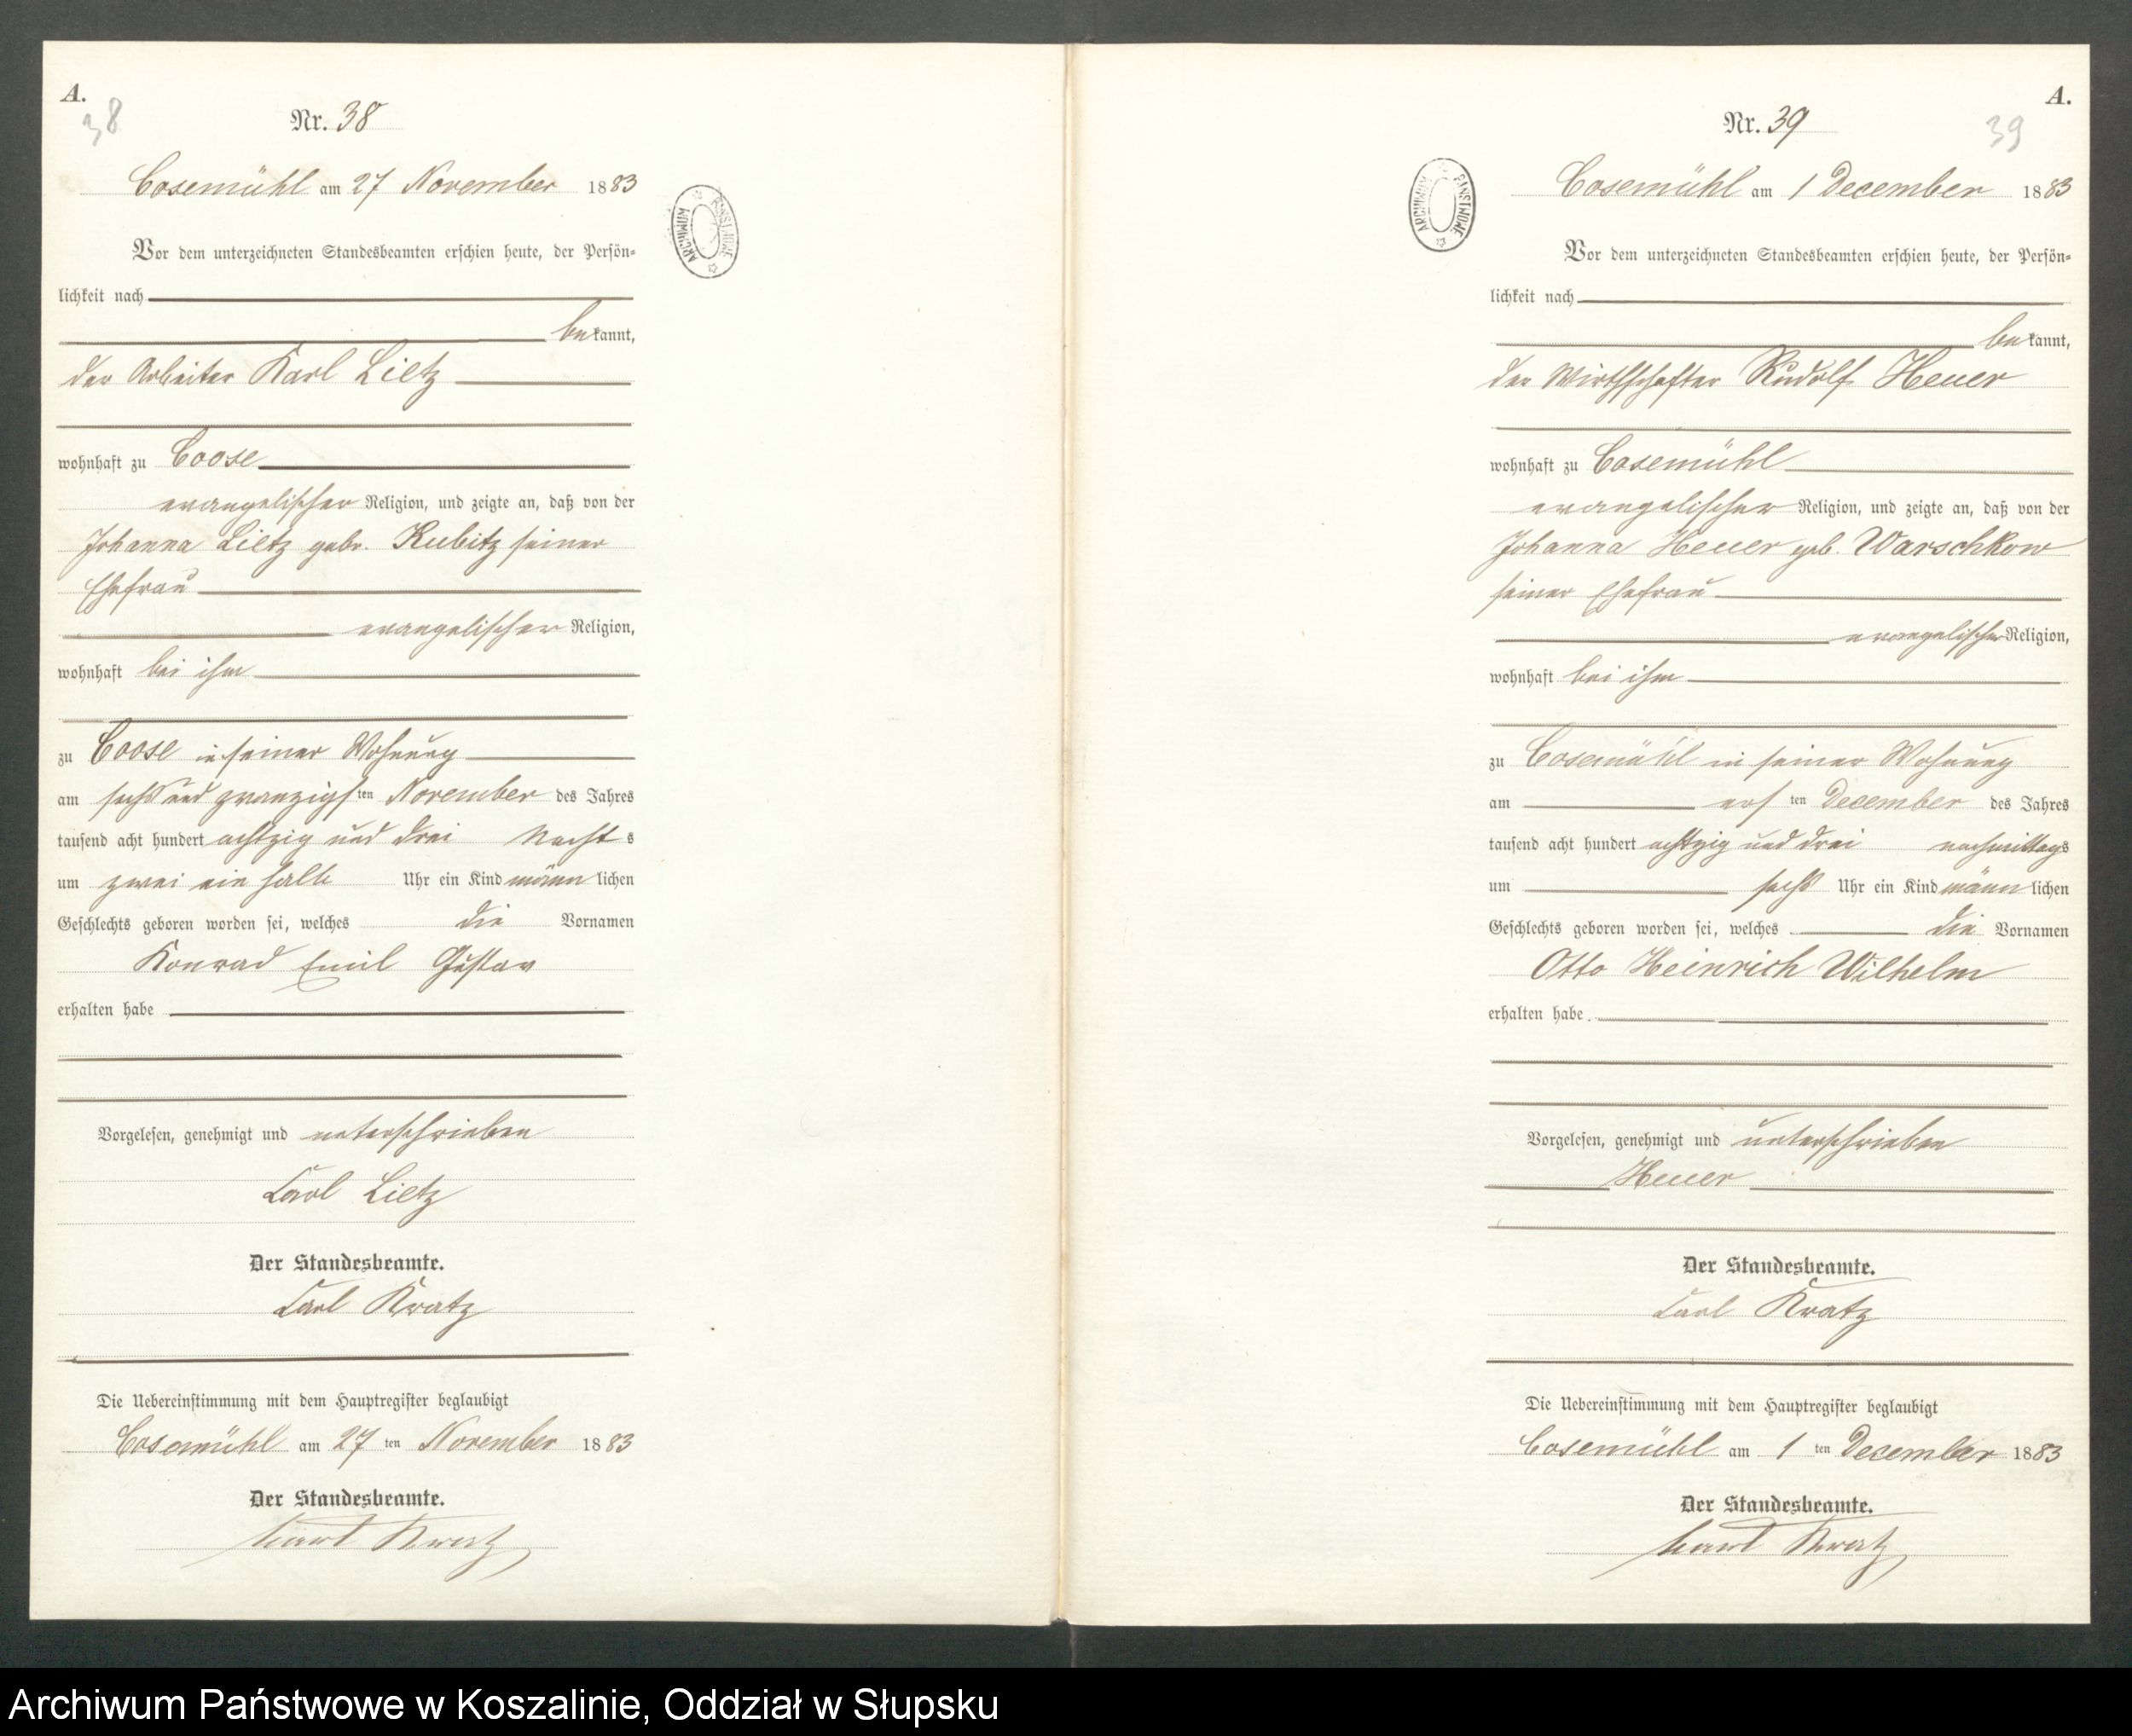 A.
38
Nr. 38
Cosemühl am 27 November 1883
Vor dem unterzeichneten Standesbeamten erschien heute, der Persön-
lichkeit nach
bekannt,
der Arbeiter Karl Lietz
wohnhaft zu Coose
evangelischer Religion, und zeigte an, daß von der
Johanna Lietz gebr. Kubitz seiner
Ehefrau
evangelischer Religion,
wohnhaft bei ihm
zu Coose in seiner Wohnung
am sechs und zwanzigsten November des Jahres
tausend acht hundert achtzig und drei Nachts
um zwei ein halb Uhr ein Kind männlichen
Geschlechts geboren worden sei, welches die Vornamen
Konrad Emil Gustav
erhalten habe
Vorgelesen, genehmigt und unterschrieben
Carl Lietz
Der Standesbeamte.
Carl Kratz
Die Uebereinstimmung mit dem Hauptregister beglaubigt
Cosemühl am 27 ten November 1883
Der Standesbeamte.
Carl Kratz
ARCHIWUM PAŃSTWOWE
A.
39
Nr. 39
Cosemühl am 1 December 1883
Vor dem unterzeichneten Standesbeamten erschien heute, der Persön-
lichkeit nach
bekannt,
der Wirthschafter Rudolf Heuer
wohnhaft zu Cosemühl
evangelischer Religion, und zeigte an, daß von der
Johanna Heuer geb. Warschkow
seiner Ehefrau
evangelischer Religion,
wohnhaft bei ihm
zu Cosemühl in seiner Wohnung
am ersten December des Jahres
tausend acht hundert achtzig und drei nachmittags
um sechs Uhr ein Kind männlichen
Geschlechts geboren worden sei, welches die Vornamen
Otto Heinrich Wilhelm
erhalten habe.
Vorgelesen, genehmigt und unterschrieben
Heuer
Der Standesbeamte.
Carl Kratz
Die Uebereinstimmung mit dem Hauptregister beglaubigt
Cosemühl am 1 ten December 1883
Der Standesbeamte.
Carl Kratz
ARCHIWUM PAŃSTWOWE
Archiwum Państwowe w Koszalinie, Oddział w Słupsku